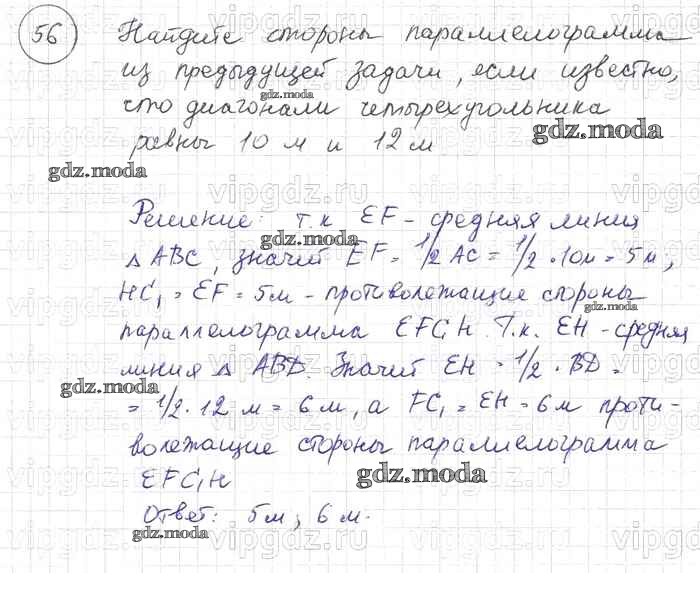 56 Найдите стороны параллелограмма
из предыдущей задачи, если известно,
что диагонали четырехугольника
равны 10 м и 12 м
Решение: т.к EF - средняя линия
△ ABC, значит EF = 1/2 AC = 1/2 · 10м = 5м,
HC₁ = EF = 5м - противолежащие стороны
параллелограмма EFC₁H. Т.к. EH - средняя
линия △ ABD. Значит EH = 1/2 · BD =
= 1/2 · 12 м = 6 м, а FC₁ = EH = 6м проти-
волежащие стороны параллелограмма
EFC₁H
Ответ: 5м; 6 м.
gdz.moda
gdz.moda
gdz.moda
gdz.moda
gdz.moda
gdz.moda
gdz.moda
gdz.moda
vipgdz.ru